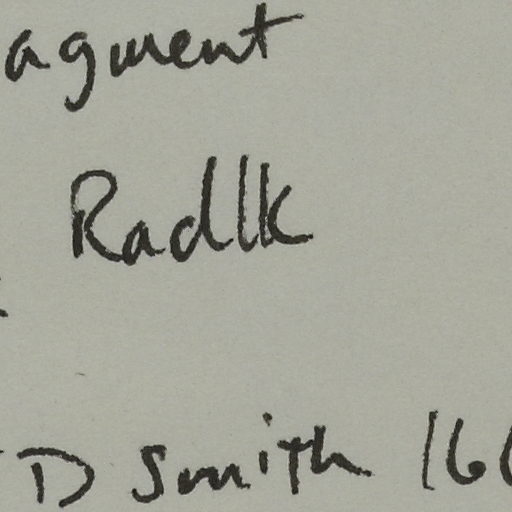 agment
Radlk
D Smith 16